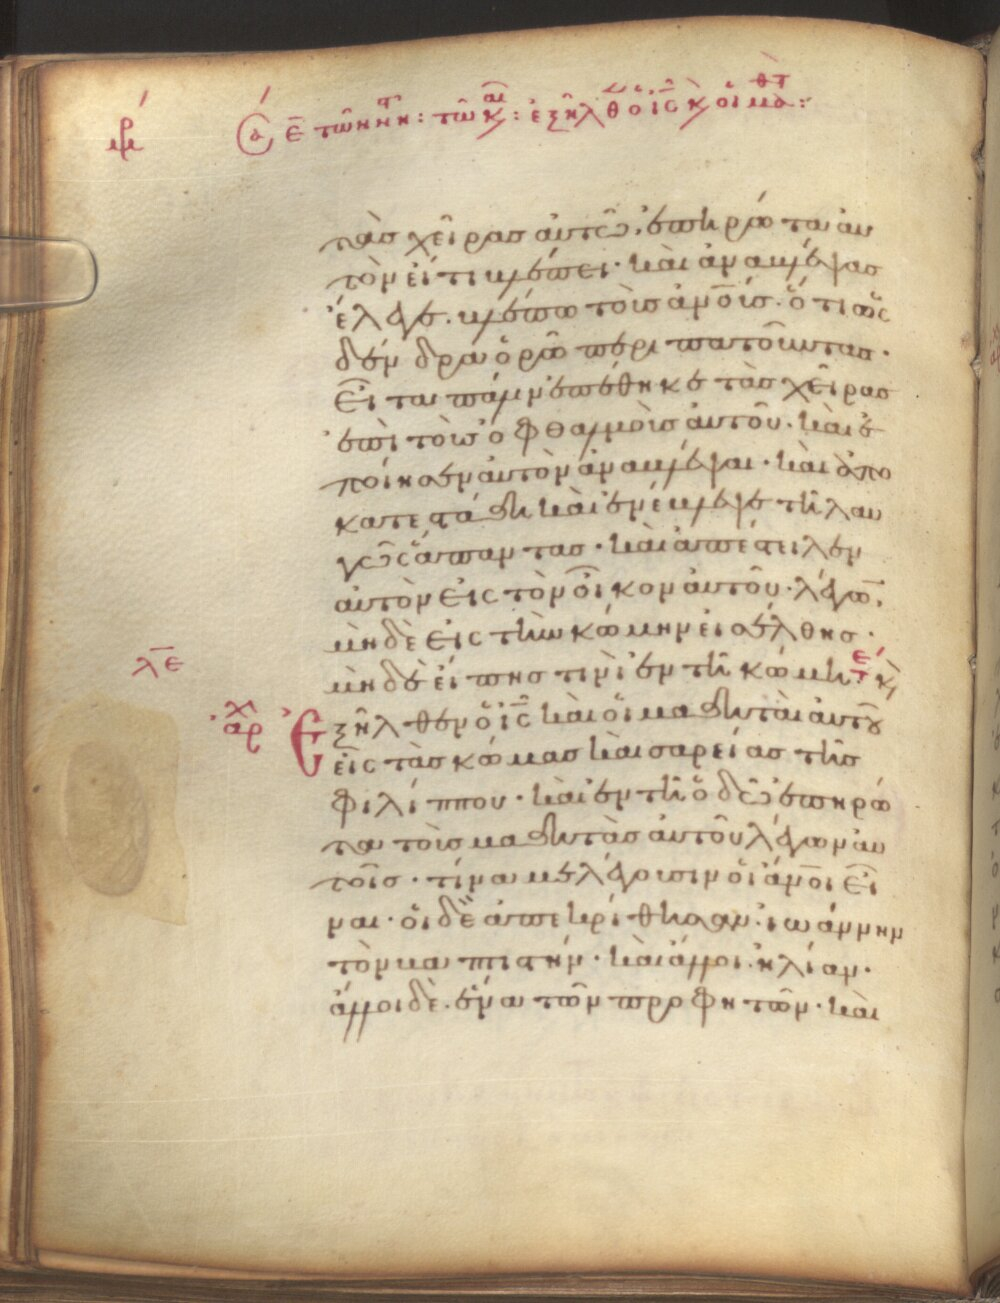 τὰσ χεῖρασ ἀυτῶ, ἐπηρώτα ἀυ
τὸν εἴ τι βλέπει· καὶ ἀναβλέψασ
ἔλεγε. βλέπω τοὺσ ἀν̅ο̅υσ. ὅτι ὡς
δένδρα ὁρῶ περιπατοῦντασ·
εἶτα πάλιν ἐπέθηκε τὰσ χεῖρασ
ἐπὶ τοὺσ ὀφθαλμοὺσ ἀυτοῦ. καὶ ἐ
ποίησεν ἀυτὸν ἀναβλέψαι· καὶ ἀπο
κατεστάθη καὶ ἐνέβλεψε τηλαυ
γῶς ἅπαντασ· καὶ ἀπέστειλεν
ἀυτὸν εἰς τὸν οἶκον ἀυτοῦ· λέγων,
μὴδὲ εἰς τὴν κώμην εἰσέλθησ·
μὴδὲ εἴπησ τινὶ ἐν τῆ κώμη· κ̀
λ̅ε̅
Ἐξῆλθεν ὁ ἰ̅ς̅ καὶ οἱ μαθηταὶ ἀυτοῦ
εἰς τὰσ κώμασ καισαρείασ τῆσ
φιλίππου· καὶ ἐν τῆ ὁδῶ ἐπηρώ
τα τοὺσ μαθητὰσ ἀυτοῦ λέγων ἀυ
τοῖσ· τίνα με λέγουσιν οἱ ἀν̅ο̅ι εἶ
ναι· οἱ δὲ ἀπεκρίθησαν. ἰωάννην
τὸν βαπτιστήν· καὶ ἄλλοι. ἠλίαν·
ἄλλοι δὲ. ἕνα τῶν προφητῶν· καὶ